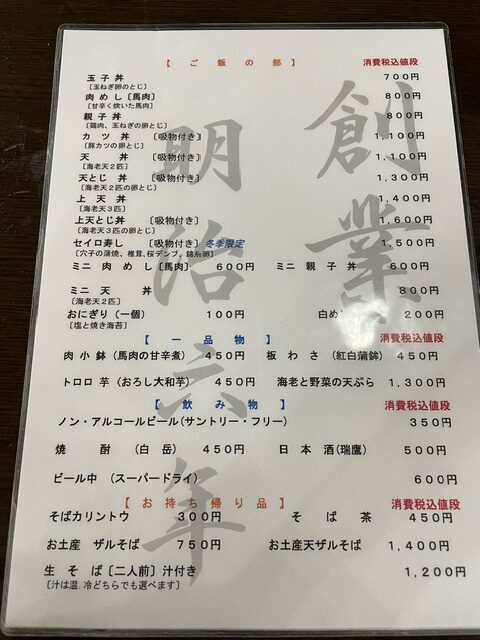 【ご飯の部】 消費税込値段
玉子丼 700円
〔玉ねぎ卵のとじ〕
肉めし〔馬肉〕 800円
〔甘辛く炊いた馬肉〕
親子丼 800円
〔鶏肉、玉ねぎの卵とじ〕
カツ丼 〔吸物付き〕 1,100円
〔豚カツの卵とじ〕
天丼 〔吸物付き〕 1,100円
〔海老天2匹〕
天とじ丼 〔吸物付き〕 1,300円
〔海老天2匹の卵とじ〕
上天丼 〔吸物付き〕 1,400円
〔海老天3匹〕
上天とじ丼 〔吸物付き〕 1,600円
〔海老天3匹の卵とじ〕
セイロ寿し 〔吸物付き〕冬季限定 1,500円
〔穴子の蒲焼、椎茸、桜デンブ、錦糸卵〕
ミニ肉めし〔馬肉〕 600円 ミニ親子丼 600円
ミニ天丼 800円
〔海老天2匹〕
おにぎり(一個) 100円 白め 200円
〔塩と焼き海苔〕
【一品物】 消費税込値段
肉小鉢(馬肉の甘辛煮) 450円 板わさ(紅白蒲鉾) 450円
トロロ芋(おろし大和芋) 450円 海老と野菜の天ぷら 1,300円
【飲み物】 消費税込値段
ノン・アルコールビール(サントリー・フリー) 350円
焼酎(白岳) 450円 日本酒(瑞鷹) 500円
ビール中(スーパードライ) 600円
【お持ち帰り品】 消費税込値段
そばカリントウ 300円 そば茶 450円
お土産ザルそば 750円 お土産天ザルそば 1,400円
生そば〔二人前〕汁付き 1,200円
〔汁は温.冷どちらでも選べます〕
創業
明治六年